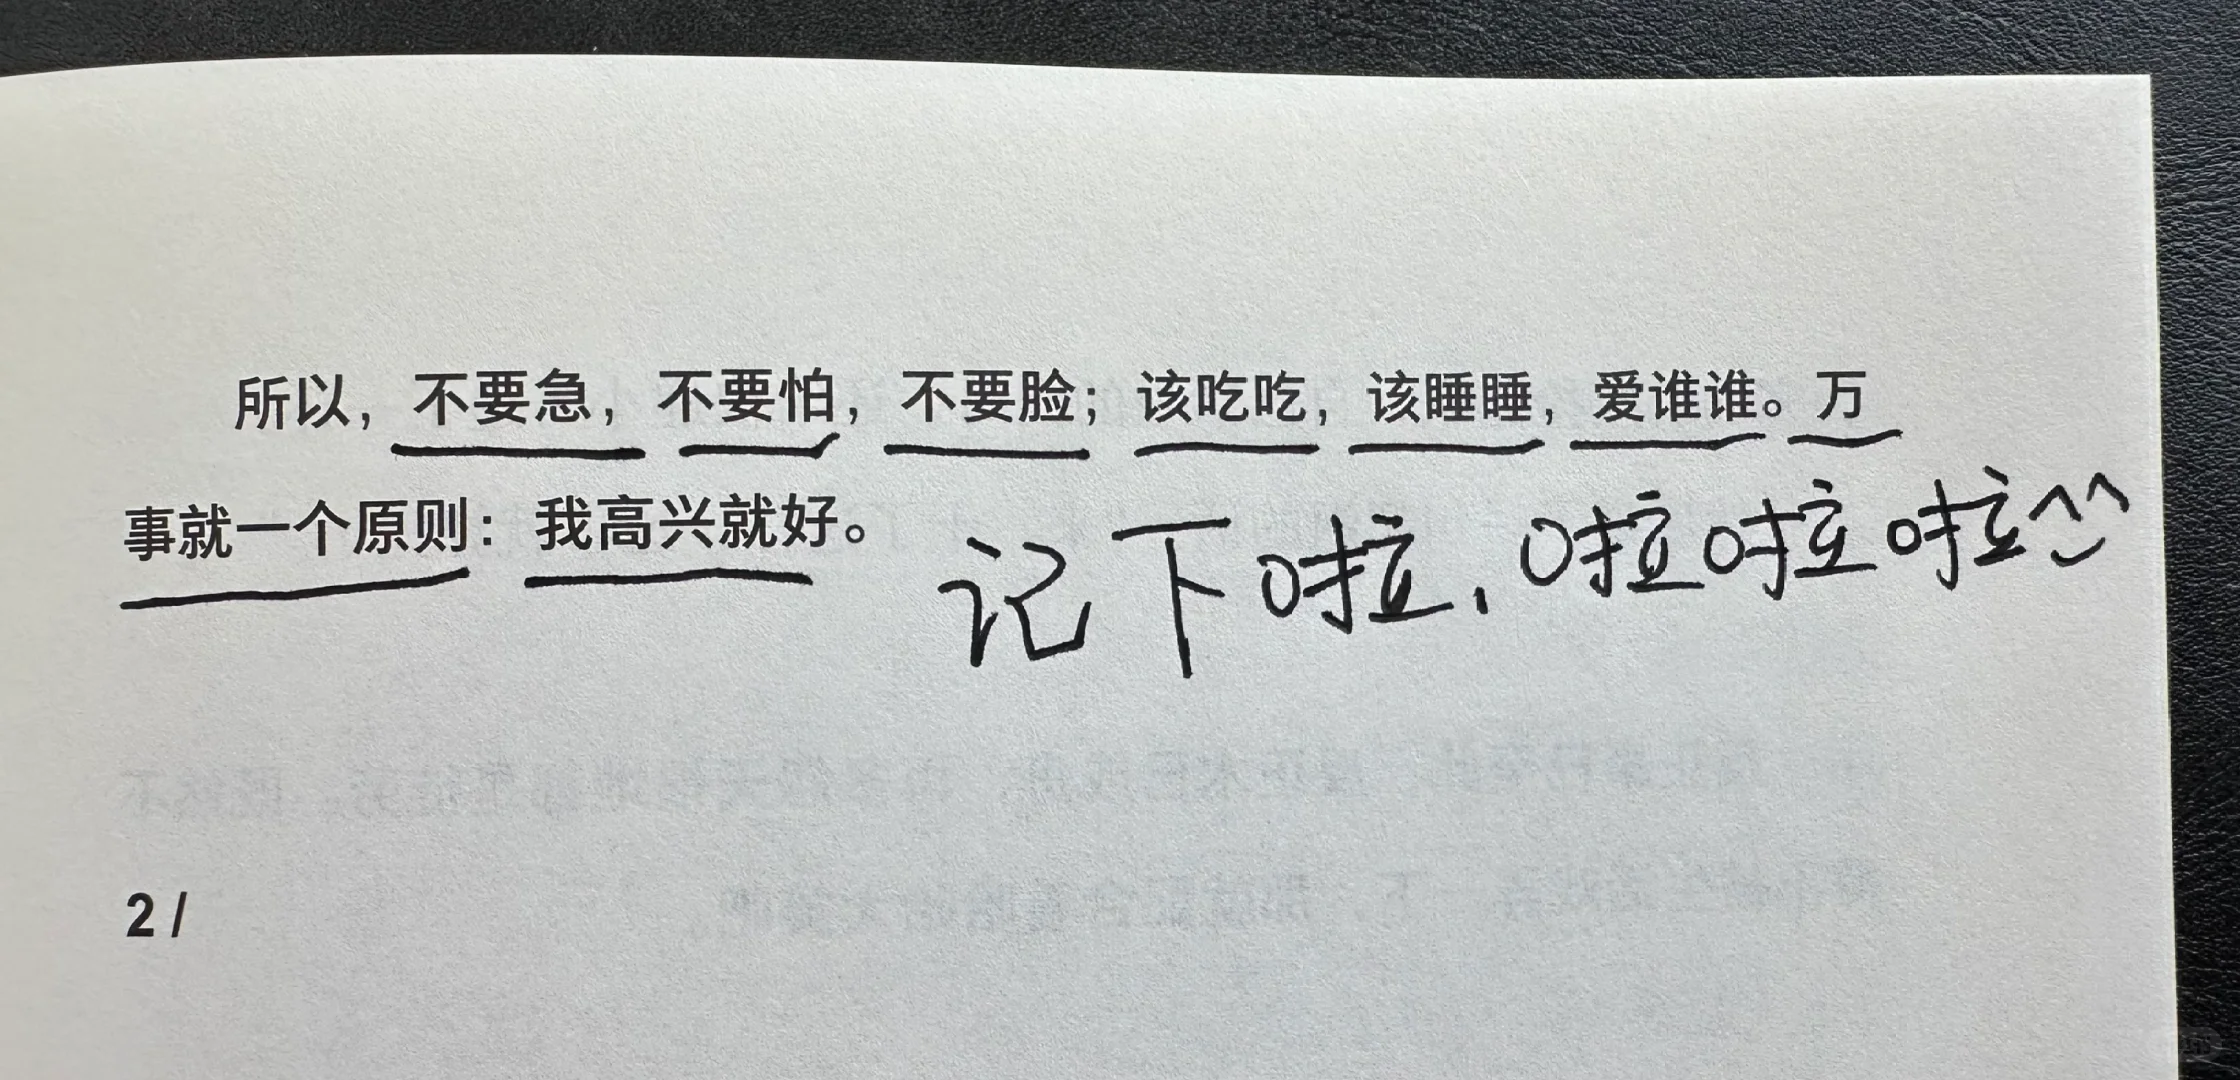 所以，不要急，不要怕，不要脸；该吃吃，该睡睡，爱谁谁。万
事就一个原则：我高兴就好。
记下啦，啦啦啦^^
2 /